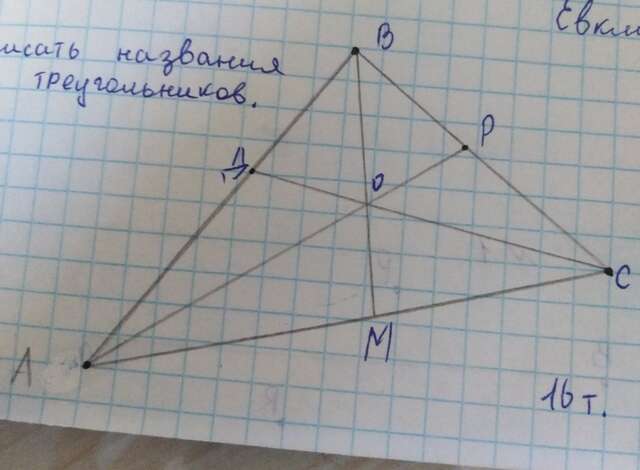 Евкл
исать названия
треугольников.
В
Д
Р
О
С
М
А
16 т.